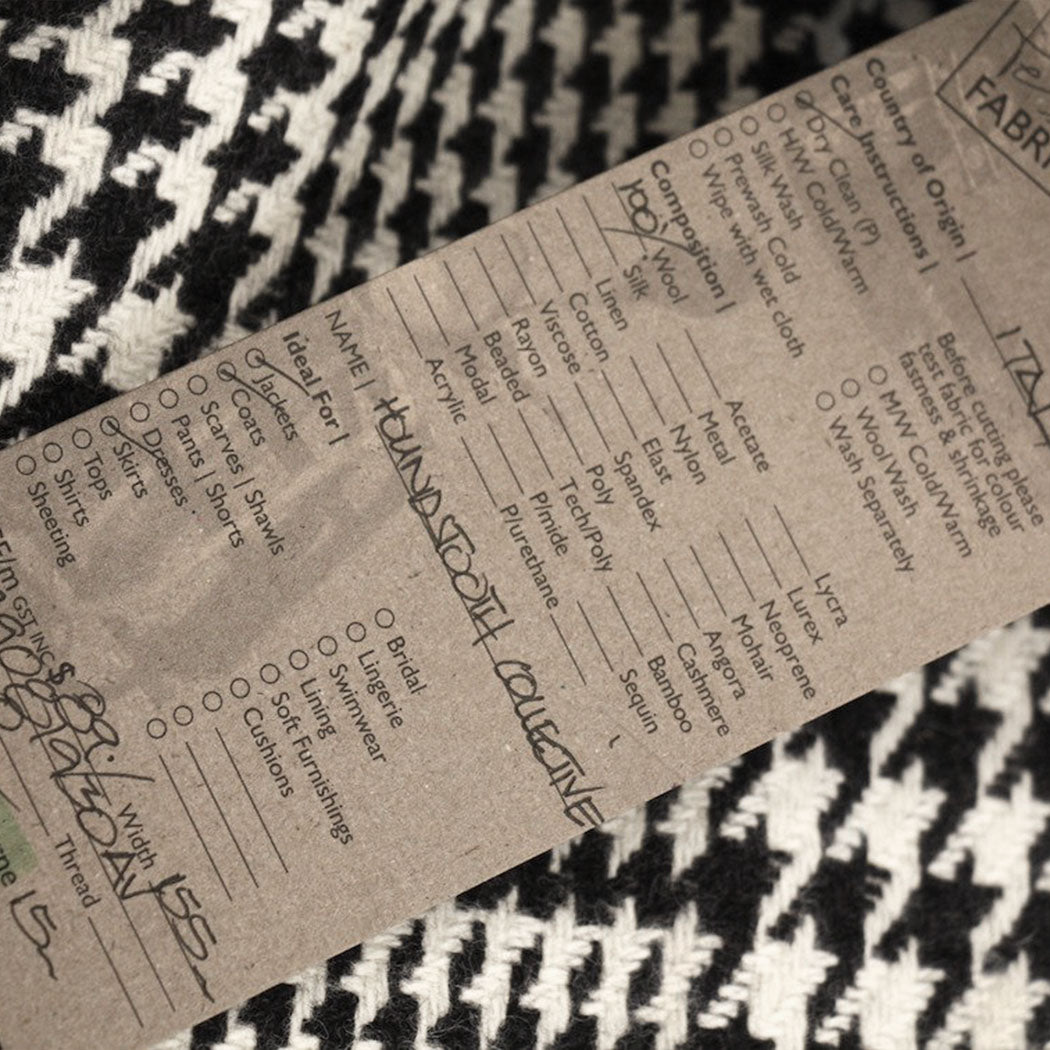 FABRI
Country of Origin |
ITALY
Care Instructions |
Dry Clean (P)
H/W Cold/Warm
Silk Wash
Prewash Cold
Wipe with wet cloth
M/W Cold/Warm
Wool Wash
Wash Separately
Before cutting please
test fabric for colour
fastness & shrinkage
Composition |
100% Wool
Silk
Linen
Cotton
Viscose
Rayon
Beaded
Modal
Acrylic
Acetate
Metal
Nylon
Elast
Spandex
Poly
Tech/Poly
P/mide
P/urethane
Lycra
Lurex
Neoprene
Mohair
Angora
Cashmere
Bamboo
Sequin
NAME | HOUNDSTOOTH COLLECTIVE
Ideal For |
Jackets
Coats
Scarves | Shawls
Pants | Shorts
Dresses
Skirts
Tops
Shirts
Sheeting
Bridal
Lingerie
Swimwear
Lining
Soft Furnishings
Cushions
/m GST INC $ 89.
Width 155
Thread
15